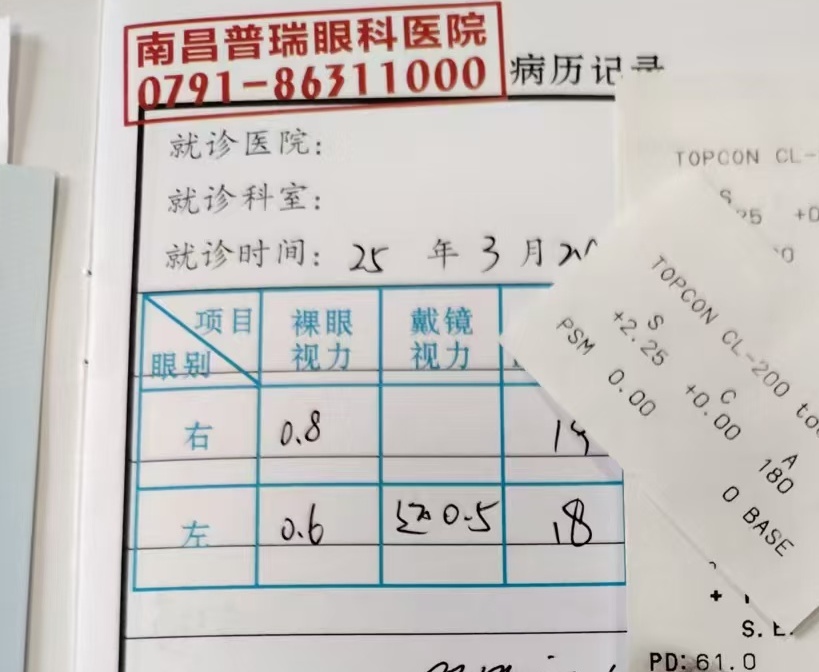 南昌普瑞眼科医院
0791-86311000
病历记录
就诊医院:
就诊科室:
就诊时间: 25 年 3 月
项目 裸眼视力 戴镜视力
眼别
右 0.8
左 0.6 0.5 18
TOPCON CL-
S
25 +0
TOPCON CL-200
S C A
+2.25 +0.00 180
PSM 0.00 0 BASE
S.E.
PD: 61.0